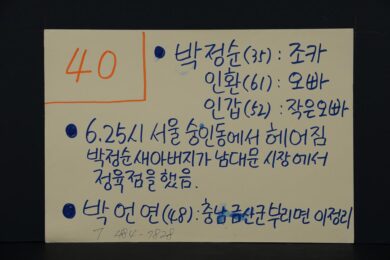 40
• 박정순(35) : 조카
인환(61) : 오빠
인갑(52) : 작은오빠
• 6.25시 서울 숭인동에서 헤어짐
박정순새아버지가 남대문 시장에서
정육점을 했음.
• 박언연(48) : 충남 금산군 부리면 이정리
7 484-7828